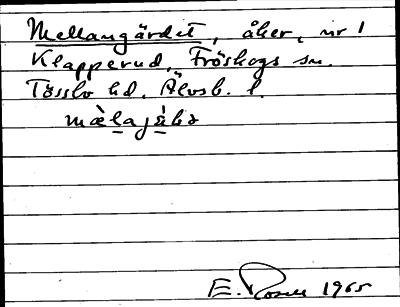 Mellangärdet, åker, nr 1
Klapperud, Fröskogs sn.
Tössbo hd. Älvsb. l.
E. Rosell 1965